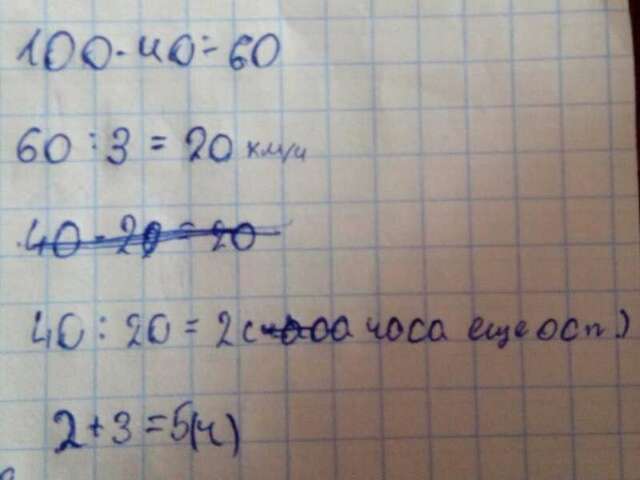 100-40=60
60:3=20 км/ч
40-20=20
40:20=2( часа еще осп.)
2+3=5(ч)